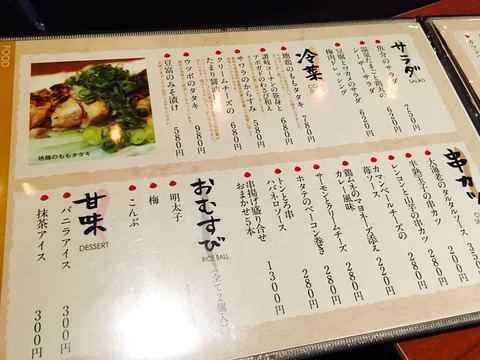 FOOD
サラダ
SALAD
魚介のサラダ 750円
温泉たまごと鶏天の
シーザーサラダ 620円
豆腐とワカメのサラダ
梅肉ドレッシング 620円
冷菜
地鶏のももタタキ 780円
讃岐コーチンの笹身と
アボガドのわさび和え 680円
サワラのからすみ 680円
クリームチーズの
たまり醤油 680円
ウツボのタタキ 980円
豆富のみそ漬け 580円
地鶏のももタタキ
串カツ
大海老のタルタルソース
半熟玉子の串カツ
レンコンと山芋の串カツ 220円
カマンベールチーズの
苺ソース 220円
鶏ミネのマヨネーズ添え
カレー風味 280円
サーモンとクリームチーズ 280円
ホタテのベーコン巻き 280円
トンとろ串
ハバネロソース 280円
串揚げ盛り合せ
おまかせ5本 1300円
おむすび
RICE BALL
(全て2個入)
明太子
梅
こんぶ
甘味
DESSERT
バニラアイス 300円
抹茶アイス 300円